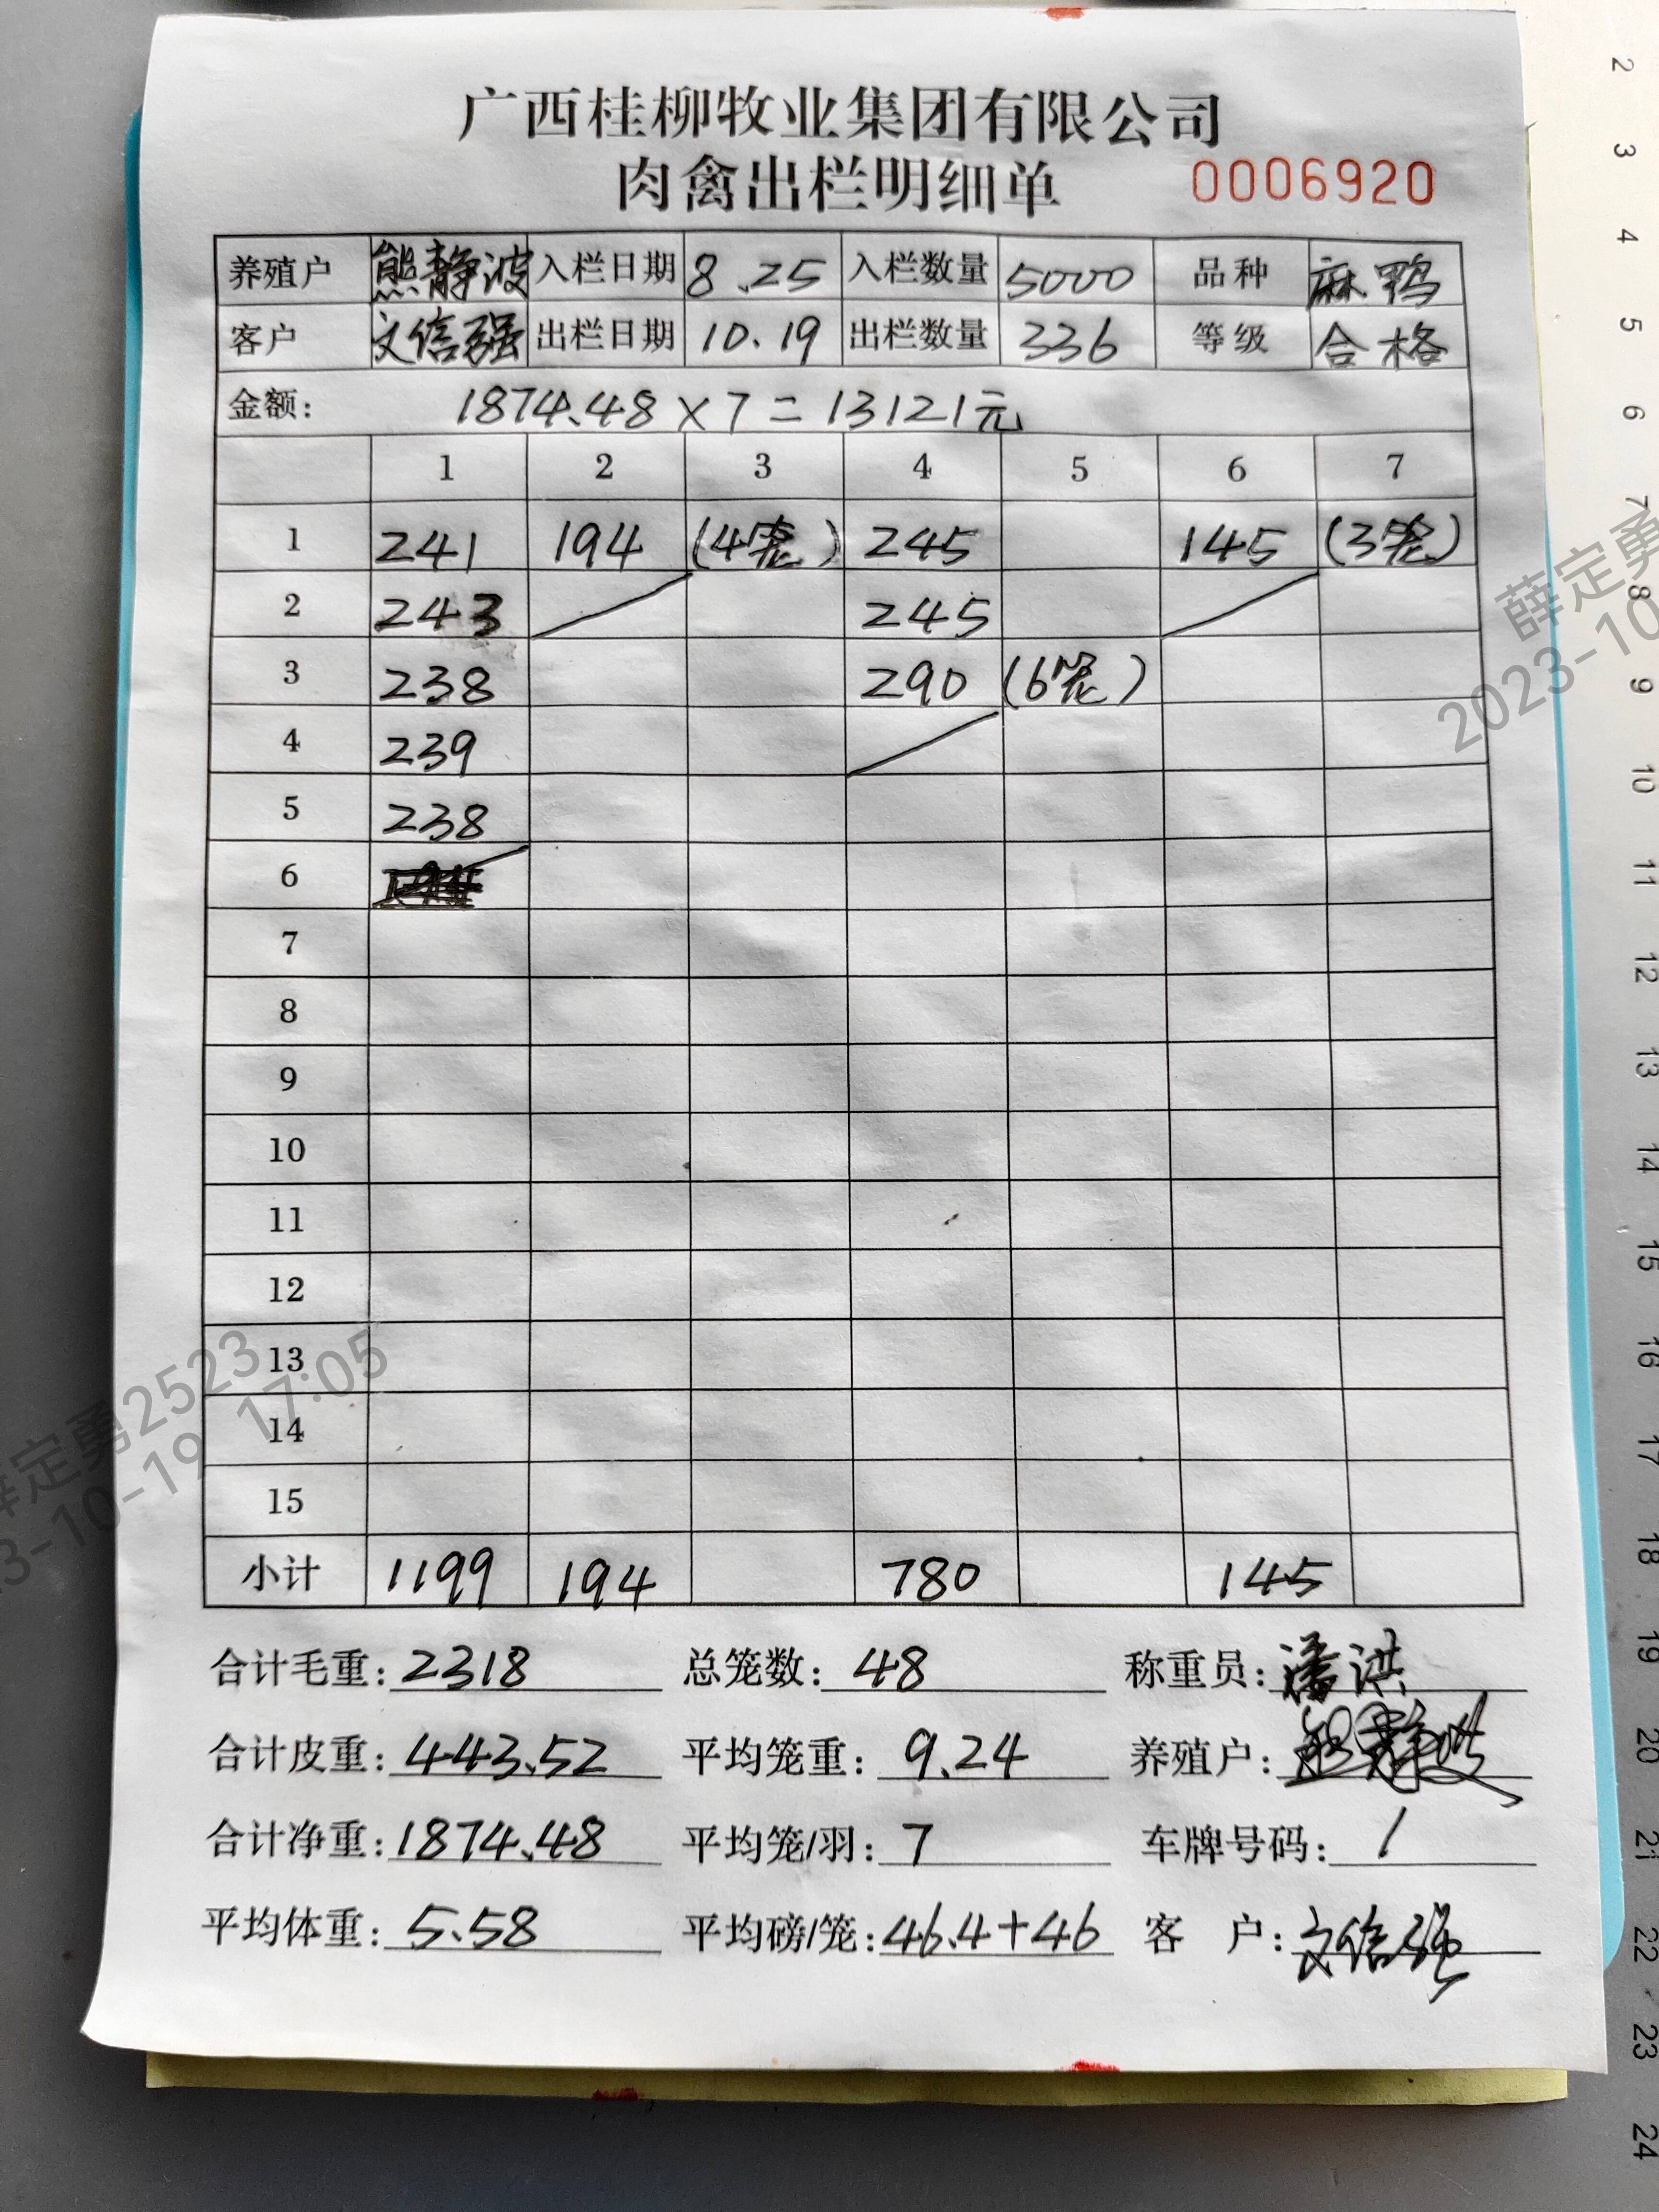 广西桂柳牧业集团有限公司
肉禽出栏明细单 0006920
养殖户 熊静波 入栏日期 8.25 入栏数量 5000 品种 麻鸭
客户 文信强 出栏日期 10.19 出栏数量 336 等级 合格
金额: 1874.48×7=13121元
1 2 3 4 5 6 7
1 241 194 (4笼) 245 145 (3笼)
2 243 245
3 238 290 (6笼)
4 239
5 238
6
7
8
9
10
11
12
13
14
15
小计 1199 194 780 145
合计毛重: 2318 总笼数: 48 称重员: 潘洪
合计皮重: 443.52 平均笼重: 9.24 养殖户: 熊静波
合计净重: 1874.48 平均笼/羽: 7 车牌号码: /
平均体重: 5.58 平均磅/笼: 46.4+46 客 户: 文信强
薛定勇
2023-10
薛定勇2523
3-10-19 17:05
2
3
4
5
6
7
8
9
10
11
12
13
14
15
16
17
18
19
20
21
22
23
24